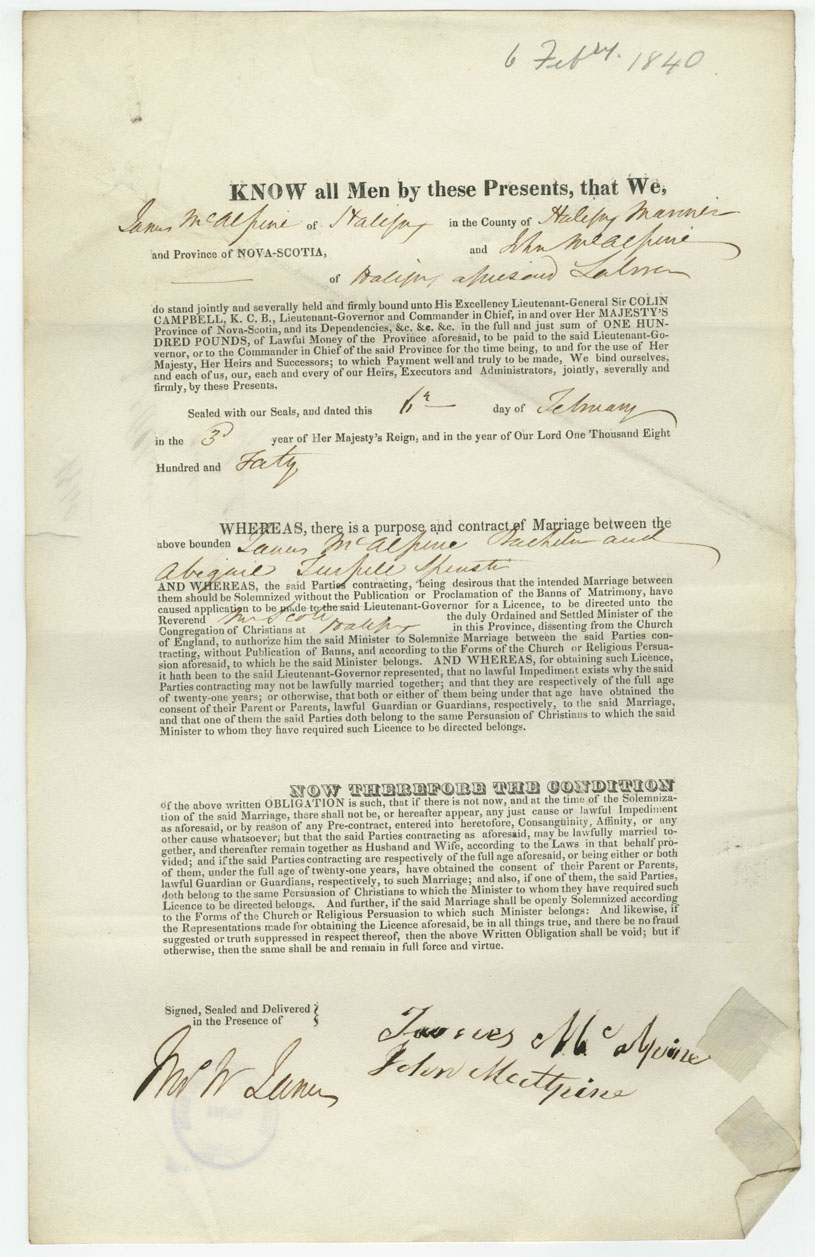 6 Feb'y. 1840
KNOW all Men by these Presents, that We,
James McAlpine of Halifax in the County of Halifax Mariner
and Province of NOVA-SCOTIA, and John McAlpine
of Halifax aforesaid
do stand jointly and severally held and firmly bound unto His Excellency Lieutenant-General Sir COLIN
CAMPBELL, K. C. B., Lieutenant-Governor and Commander in Chief, in and over Her MAJESTY'S
Province of Nova-Scotia, and its Dependencies, &c. &c. &c. in the full and just sum of ONE HUN-
DRED POUNDS, of Lawful Money of the Province aforesaid, to be paid to the said Lieutenant-Go-
vernor, or to the Commander in Chief of the said Province for the time being, to and for the use of Her
Majesty, Her Heirs and Successors; to which Payment well and truly to be made, We bind ourselves,
and each of us, our, each and every of our Heirs, Executors and Administrators, jointly, severally and
firmly, by these Presents.
Sealed with our Seals, and dated this 6th day of February
in the 3d year of Her Majesty's Reign, and in the year of Our Lord One Thousand Eight
Hundred and Forty
WHEREAS, there is a purpose and contract of Marriage between the
above bounden James McAlpine Bachelor and
Abigail Turpell Spinster
AND WHEREAS, the said Parties contracting, being desirous that the intended Marriage between
them should be Solemnized without the Publication or Proclamation of the Banns of Matrimony, have
caused application to be made to the said Lieutenant-Governor for a Licence, to be directed unto the
Reverend Mr Scott the duly Ordained and Settled Minister of the
Congregation of Christians at Halifax in this Province, dissenting from the Church
of England, to authorize him the said Minister to Solemnize Marriage between the said Parties con-
tracting, without Publication of Banns, and according to the Forms of the Church or Religious Persua-
sion aforesaid, to which he the said Minister belongs. AND WHEREAS, for obtaining such Licence,
it hath been to the said Lieutenant-Governor represented, that no lawful Impediment exists why the said
Parties contracting may not be lawfully married together; and that they are respectively of the full age
of twenty-one years; or otherwise, that both or either of them being under that age have obtained the
consent of their Parent or Parents, lawful Guardian or Guardians, respectively, to the said Marriage,
and that one of them the said Parties doth belong to the same Persuasion of Christians to which the said
Minister to whom they have required such Licence to be directed belongs.
NOW THEREFORE THE CONDITION
of the above written OBLIGATION is such, that if there is not now, and at the time of the Solemniza-
tion of the said Marriage, there shall not be, or hereafter appear, any just cause or lawful Impediment
as aforesaid, or by reason of any Pre-contract, entered into heretofore, Consanguinity, Affinity, or any
other cause whatsoever; but that the said Parties contracting as aforesaid, may be lawfully married to-
gether, and thereafter remain together as Husband and Wife, according to the Laws in that behalf pro-
vided; and if the said Parties contracting are respectively of the full age aforesaid, or being either or both
of them, under the full age of twenty-one years, have obtained the consent of their Parent or Parents,
lawful Guardian or Guardians, respectively, to such Marriage; and also, if one of them, the said Parties,
doth belong to the same Persuasion of Christians to which the Minister to whom they have required such
Licence to be directed belongs. And further, if the said Marriage shall be openly Solemnized according
to the Forms of the Church or Religious Persuasion to which such Minister belongs: And likewise, if
the Representations made for obtaining the Licence aforesaid, be in all things true, and there be no fraud
suggested or truth suppressed in respect thereof, then the above Written Obligation shall be void; but if
otherwise, then the same shall be and remain in full force and virtue.
Signed, Sealed and Delivered
in the Presence of
James McAlpine
John McAlpine